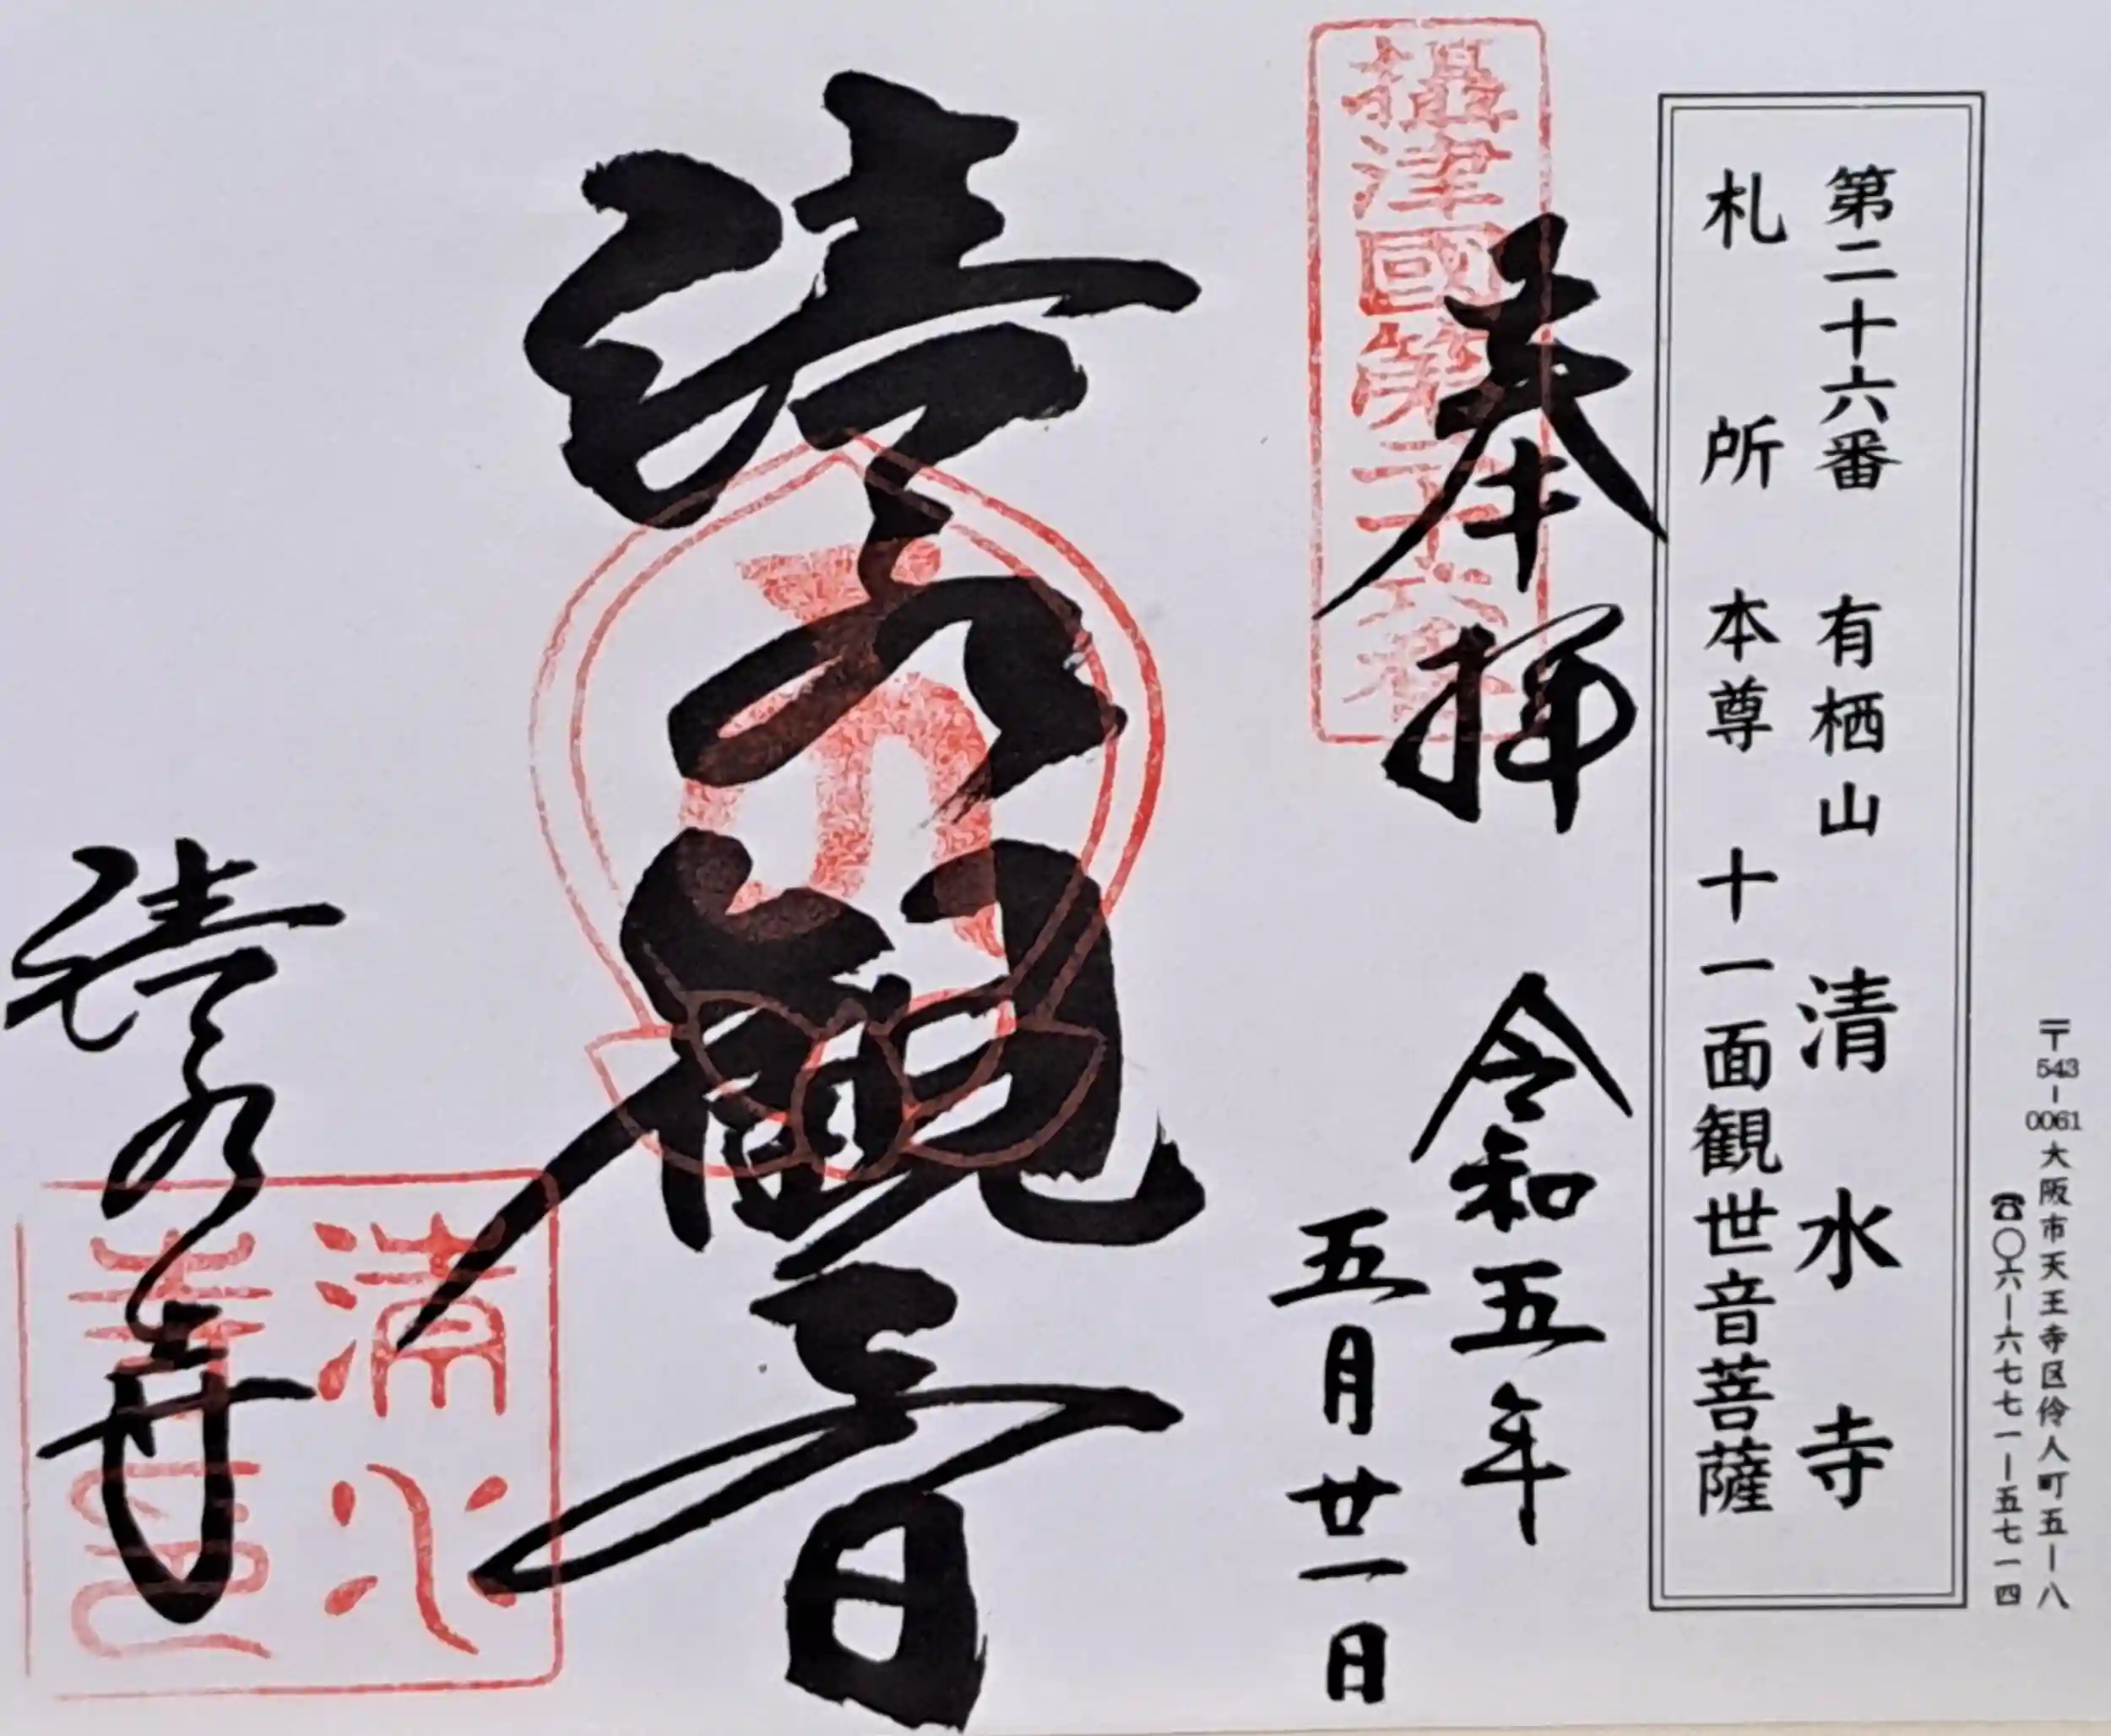 〒543-0061大阪市天王寺区伶人町五-八
☎〇六-六七七一-五七一四
第二十六番 有栖山 清水寺
札所 本尊 十一面観世音菩薩
奉拝
令和五年
五月廿一日
攝津國第二十六番
清水観音
清水寺
清水
寺印